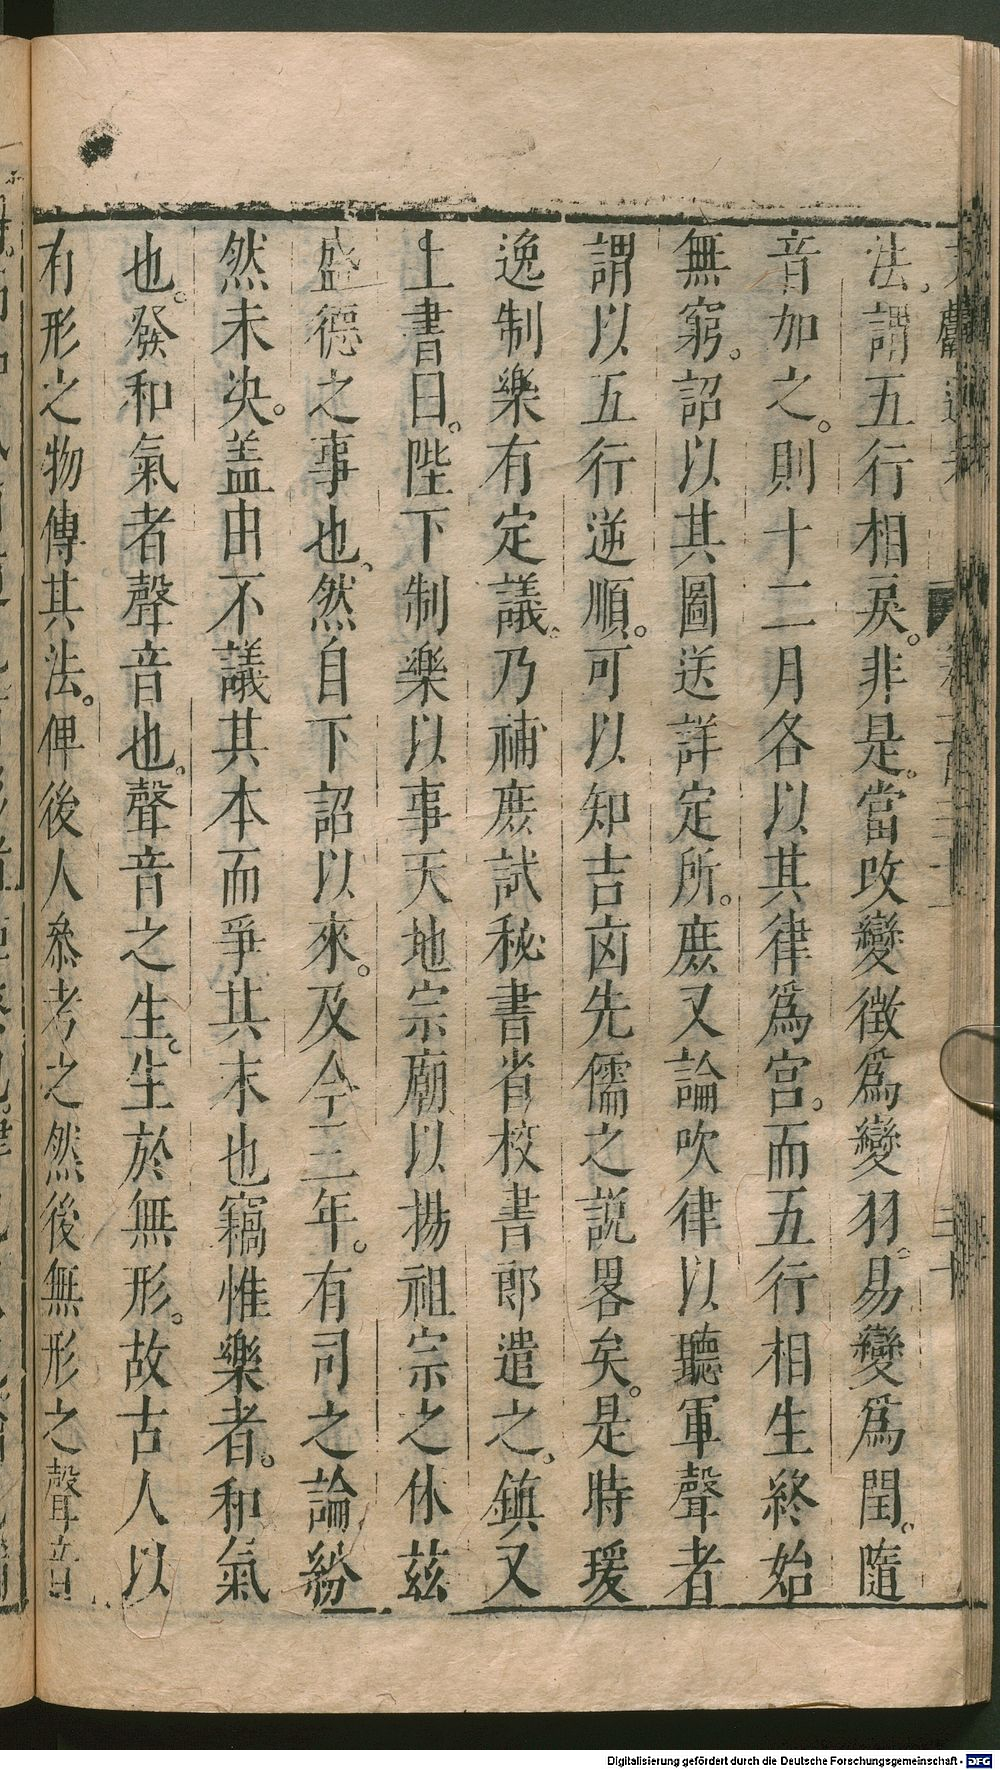 法、謂五行相戾。非是。當改變徵爲變羽。易變爲閏。隨
音加之。則十二月各以其律爲宮。而五行相生終始
無窮。詔以其圖送詳定所。庶又論吹律以聽軍聲者
謂以五行逆順。可以知吉凶先儒之說畧矣。是時瑗
逸制樂有定議。乃補庶試秘書省校書郎遣之。鎮又
上書曰。陛下制樂以事天地宗廟以揚祖宗之休茲
盛德之事也、然自下詔以來。及今三年。有司之論紛
然未決。盖由不議其本而爭其末也竊惟樂者。和氣
也。發和氣者聲音也。聲音之生。生於無形。故古人以
有形之物傳其法。俾後人叅考之然後無形之聲音
Digitalisierung gefördert durch die Deutsche Forschungsgemeinschaft - DFG